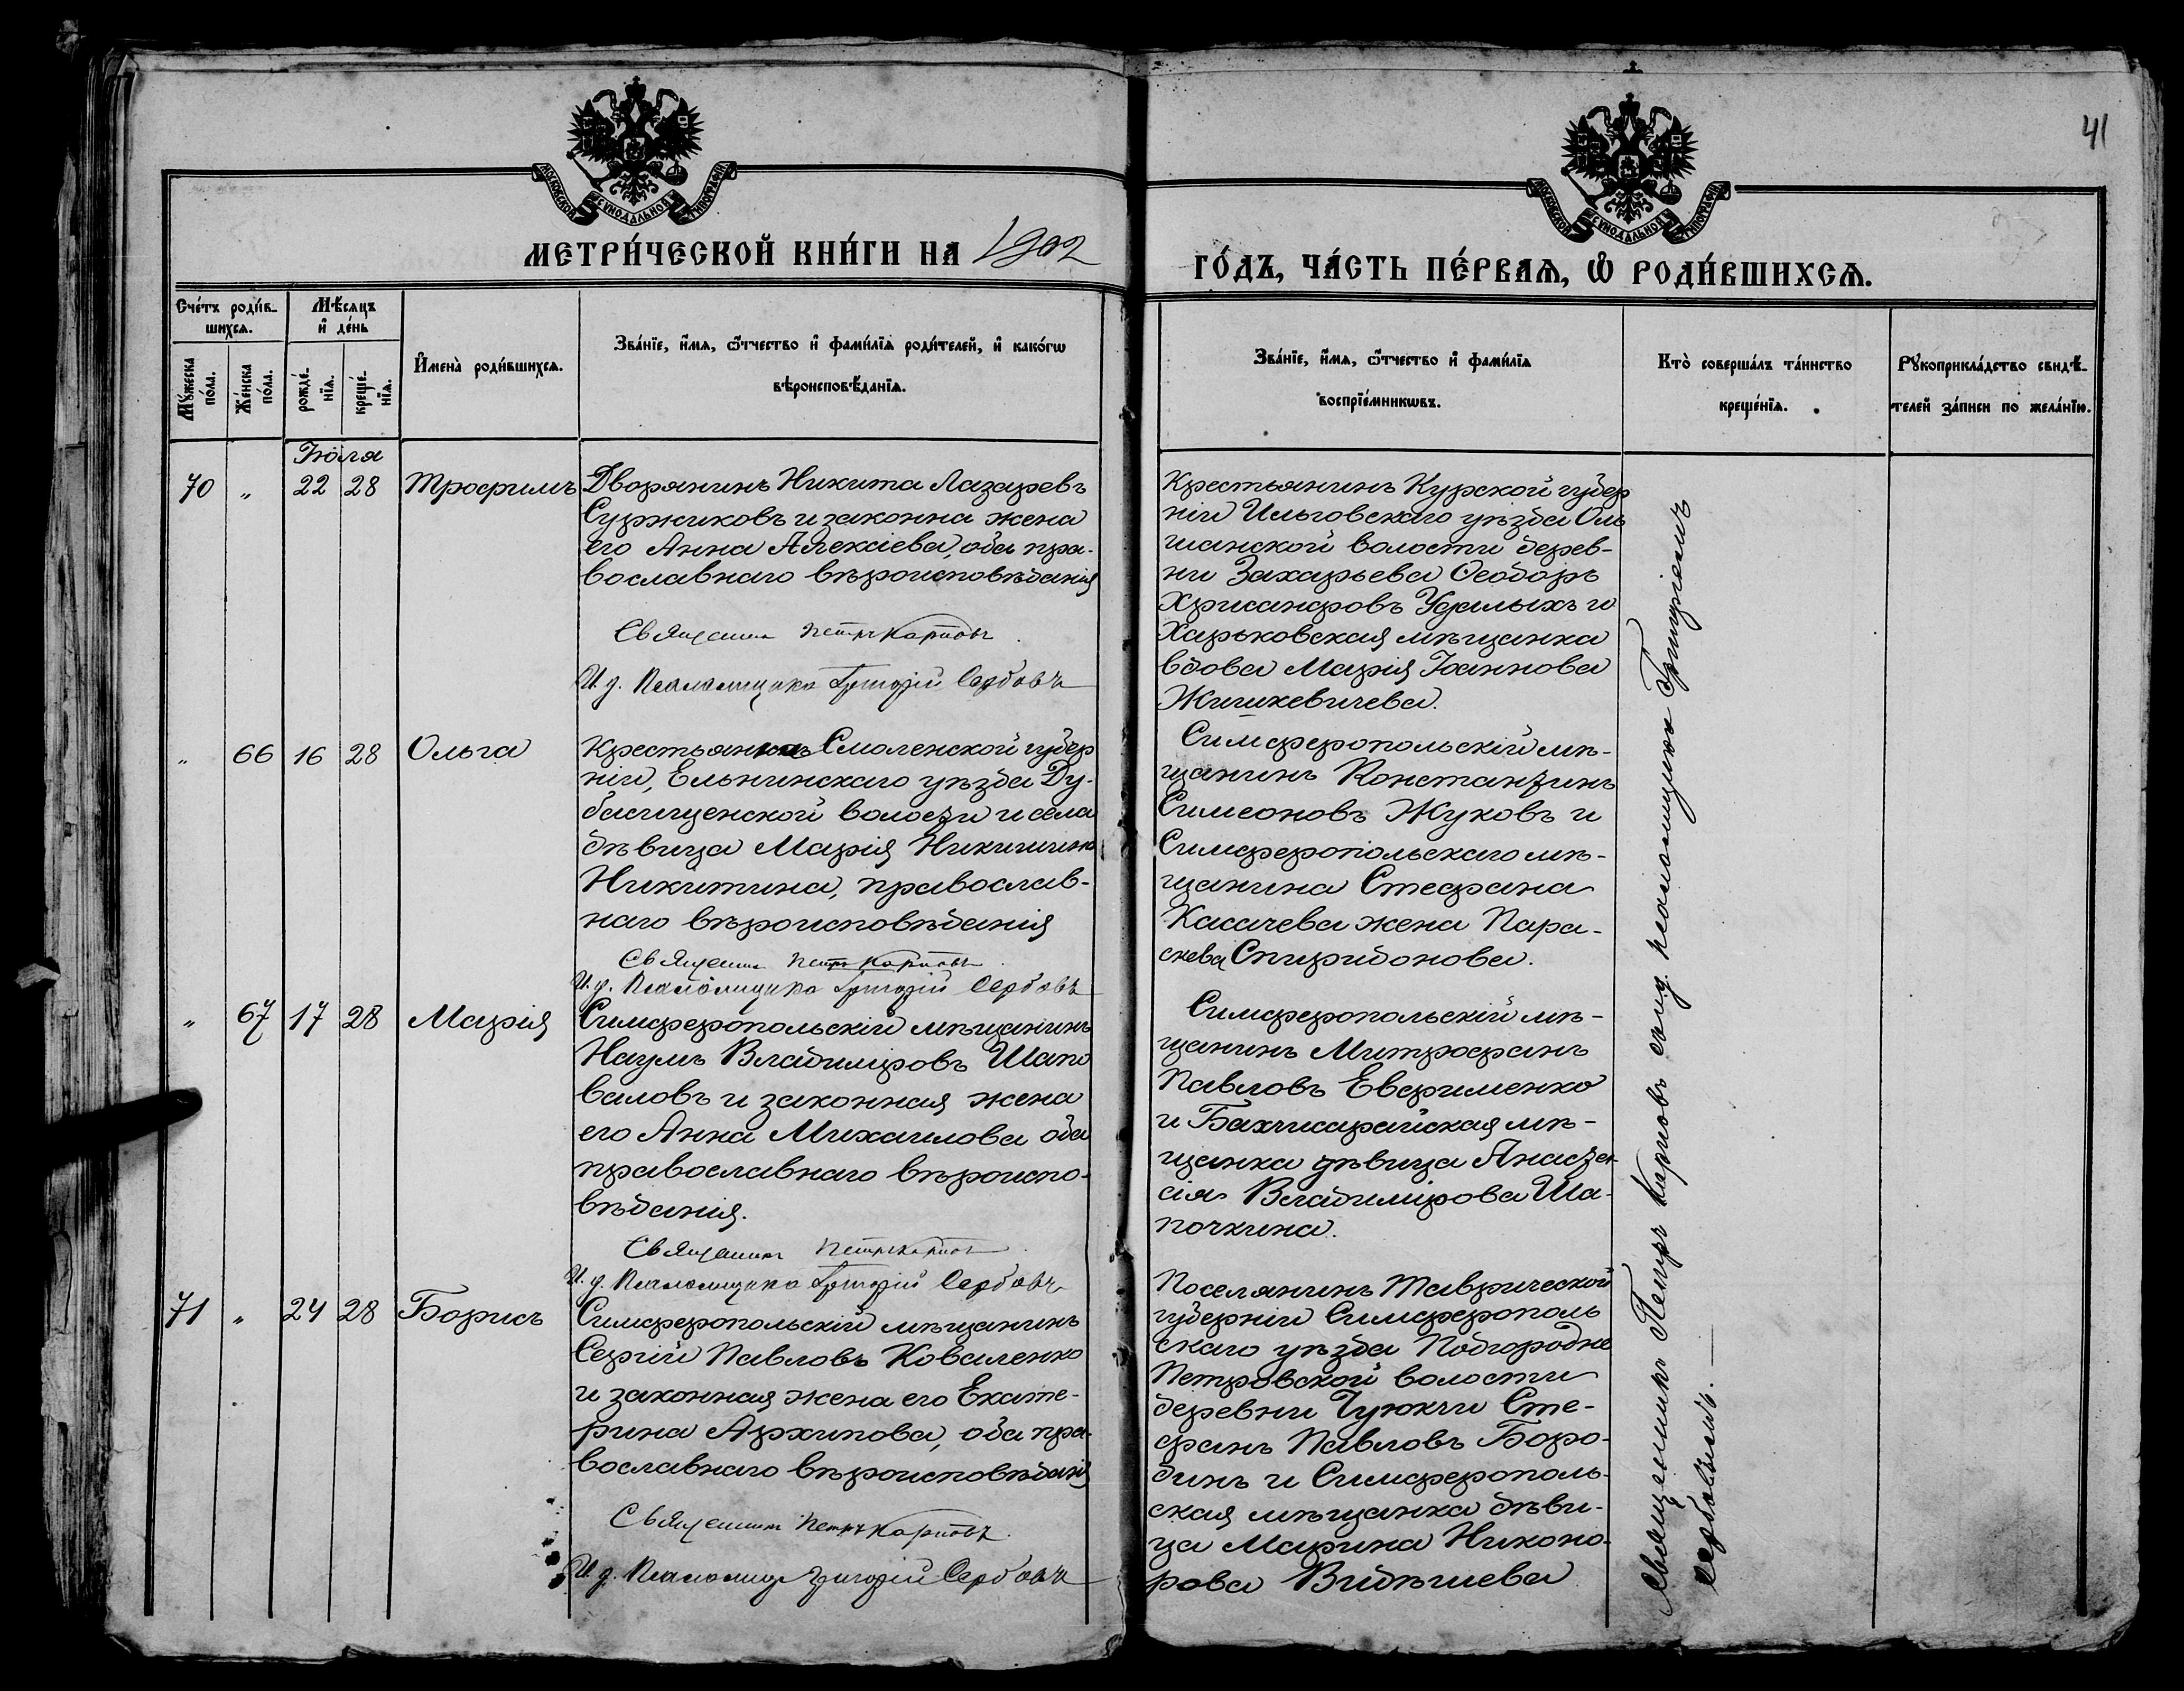 41
МОСКОВСКОЙ СѴНОДАЛЬНОЙ ТИПОГРАФІИ
МОСКОВСКОЙ СѴНОДАЛЬНОЙ ТИПОГРАФІИ
МЕТРИ́ЧЕСКОЙ КНИ́ГИ НА 1902
ГО́ДЪ, ЧА́СТЬ ПЕ́РВАѦ, Ѡ҆ РОДИ́ВШИХСѦ.
Сче́тъ роди́в-
шихсѧ.
Мꙋ́жеска
по́ла.
Же́нска
по́ла.
Мѣ́сѧцъ
и҆ де́нь
рожде́-
нїѧ.
креще́-
нїѧ.
И҆мена̀ роди́вшихсѧ.
Зва́нїе, и҆́мѧ, ѻ҆́тчество и҆ фами́лїѧ роди́телей, и҆ како́гѡ
вѣроисповѣ́данїѧ.
Зва́нїе, и҆́мѧ, ѻ҆́тчество и҆ фами́лїѧ
воспрїе́мникѡвъ.
Кто̀ соверша́лъ та́инство
креще́нїѧ.
Рꙋкоприкла́дство свидѣ́-
телей за́писи по жела́нїю.
Іюля
70 " 22 28 Трофимъ
Дворянинъ Никита Лазаревъ
Суржиковъ и законна жена
его Анна Алексіева, оба пра-
вославнаго вѣроисповѣданія
Священник Петръ Карповъ
И. д. Псаломщика Григорій Сербовъ
Крестьянинъ Курской губер
ніи Ильговскаго уѣзда Оль
шанской волости дерев-
ни Захарьева Ѳеодоръ
Хрисанфовъ Удалыхъ и
Харьковская мѣщанка
вдова Марія Іоаннова
Жишкевичева.
" 66 16 28 Ольга
Крестьянка Смоленской губер
ніи, Ельнинскаго уѣзда Ду-
басищенской волости и села
дѣвица Марія Никитина
Никитина, православ-
наго вѣроисповѣданія
Священник Петръ Карповъ
И. д. Псаломщика Григорій Сербовъ
Симферопольскій мѣ-
щанинъ Константинъ
Симеоновъ Жуковъ и
Симферопольскаго мѣ-
щанина Стефана
Касачева жена Пара-
скева Спиридонова.
" 67 17 28 Марія
Симферопольскій мѣщанинъ
Наумъ Владиміровъ Шапо
валовъ и законная жена
его Анна Михаилова оба
православнаго вѣроиспо-
вѣданія.
Священник Петръ Карповъ
И. д. Псаломщика Григорій Сербовъ
Симферопольскій мѣ-
щанинъ Митрофанъ
Павловъ Евфименко
и Бахчисарайская мѣ-
щанка дѣвица Анаста-
сія Владимірова Ша-
почкина.
71 " 24 28 Борисъ
Симферопольскій мѣщанинъ
Сергій Павловъ Коваленко
и законная жена его Екате-
рина Архипова, оба пра-
вославнаго вѣроисповѣданія
Священник Петръ Карповъ.
И. д. Псаломщ Григорій Сербовъ
Поселянинъ Таврической
губерніи Симферополь
скаго уѣзда Подгородне
Петровской волости
деревни Чуюкчи Сте-
фанъ Павловъ Боро-
динъ и Симферополь-
ская мѣщанка дѣви-
ца Марина Никоно-
рова Видѣшева
Священникъ Петръ Карповъ съ и. д. псаломщика Григоріемъ
Сербовымъ. —